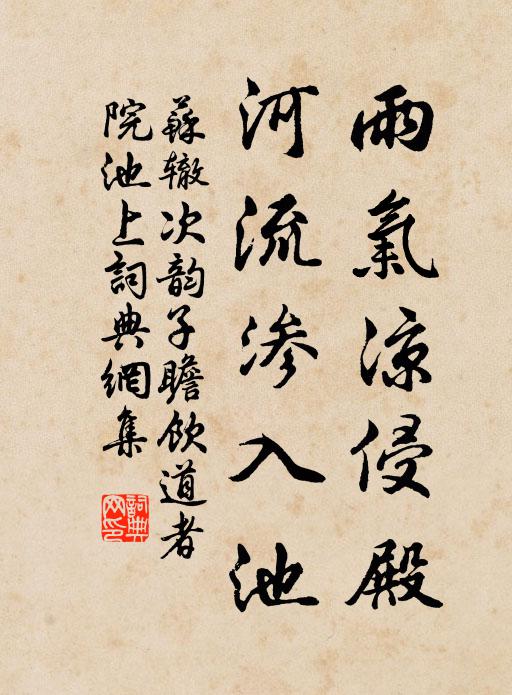 雨氣涼侵殿
河流渗入池
蘇辙次韵子瞻飲道者
院池上詞典網集
詞典
网印